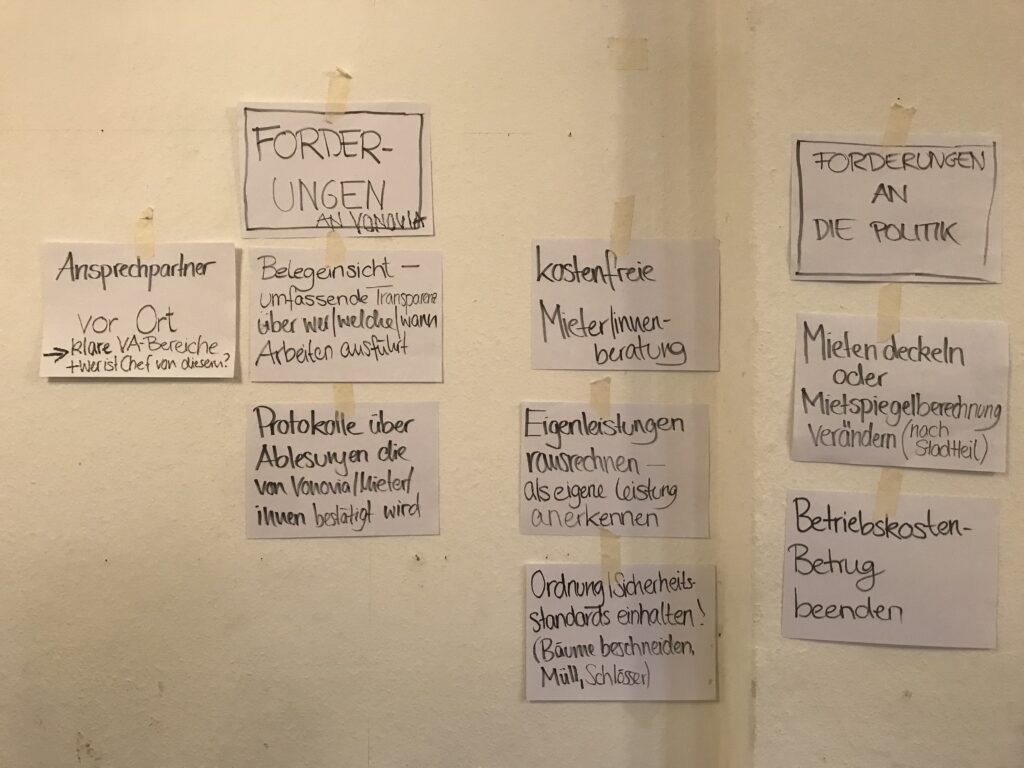 FORDER-
UNGEN
AN VONOVIA
Ansprechpartner
vor Ort
→ klare VA-Bereiche
+ wer ist Chef von diesem?
Belegeinsicht –
umfassende Transparenz
über wer/welche/wann
Arbeiten ausführt
Protokolle über
Ablesungen die
von Vonovia/Mieter/
innen bestätigt wird
kostenfreie
Mieter/innen-
beratung
Eigenleistungen
rausrechnen –
als eigene Leistung
anerkennen
Ordnung/Sicherheits-
standards einhalten!
(Bäume beschneiden,
Müll, Schlösser)
FORDERUNGEN
AN
DIE POLITIK
Mieten deckeln
oder
Mietspiegelberechnung
verändern (nach
Stadtteil)
Betriebskosten-
Betrug
beenden